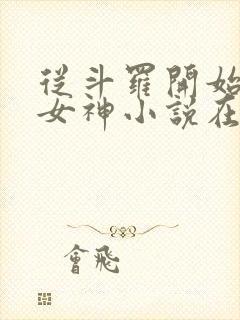 從斗羅開始
女神小說在
會飛